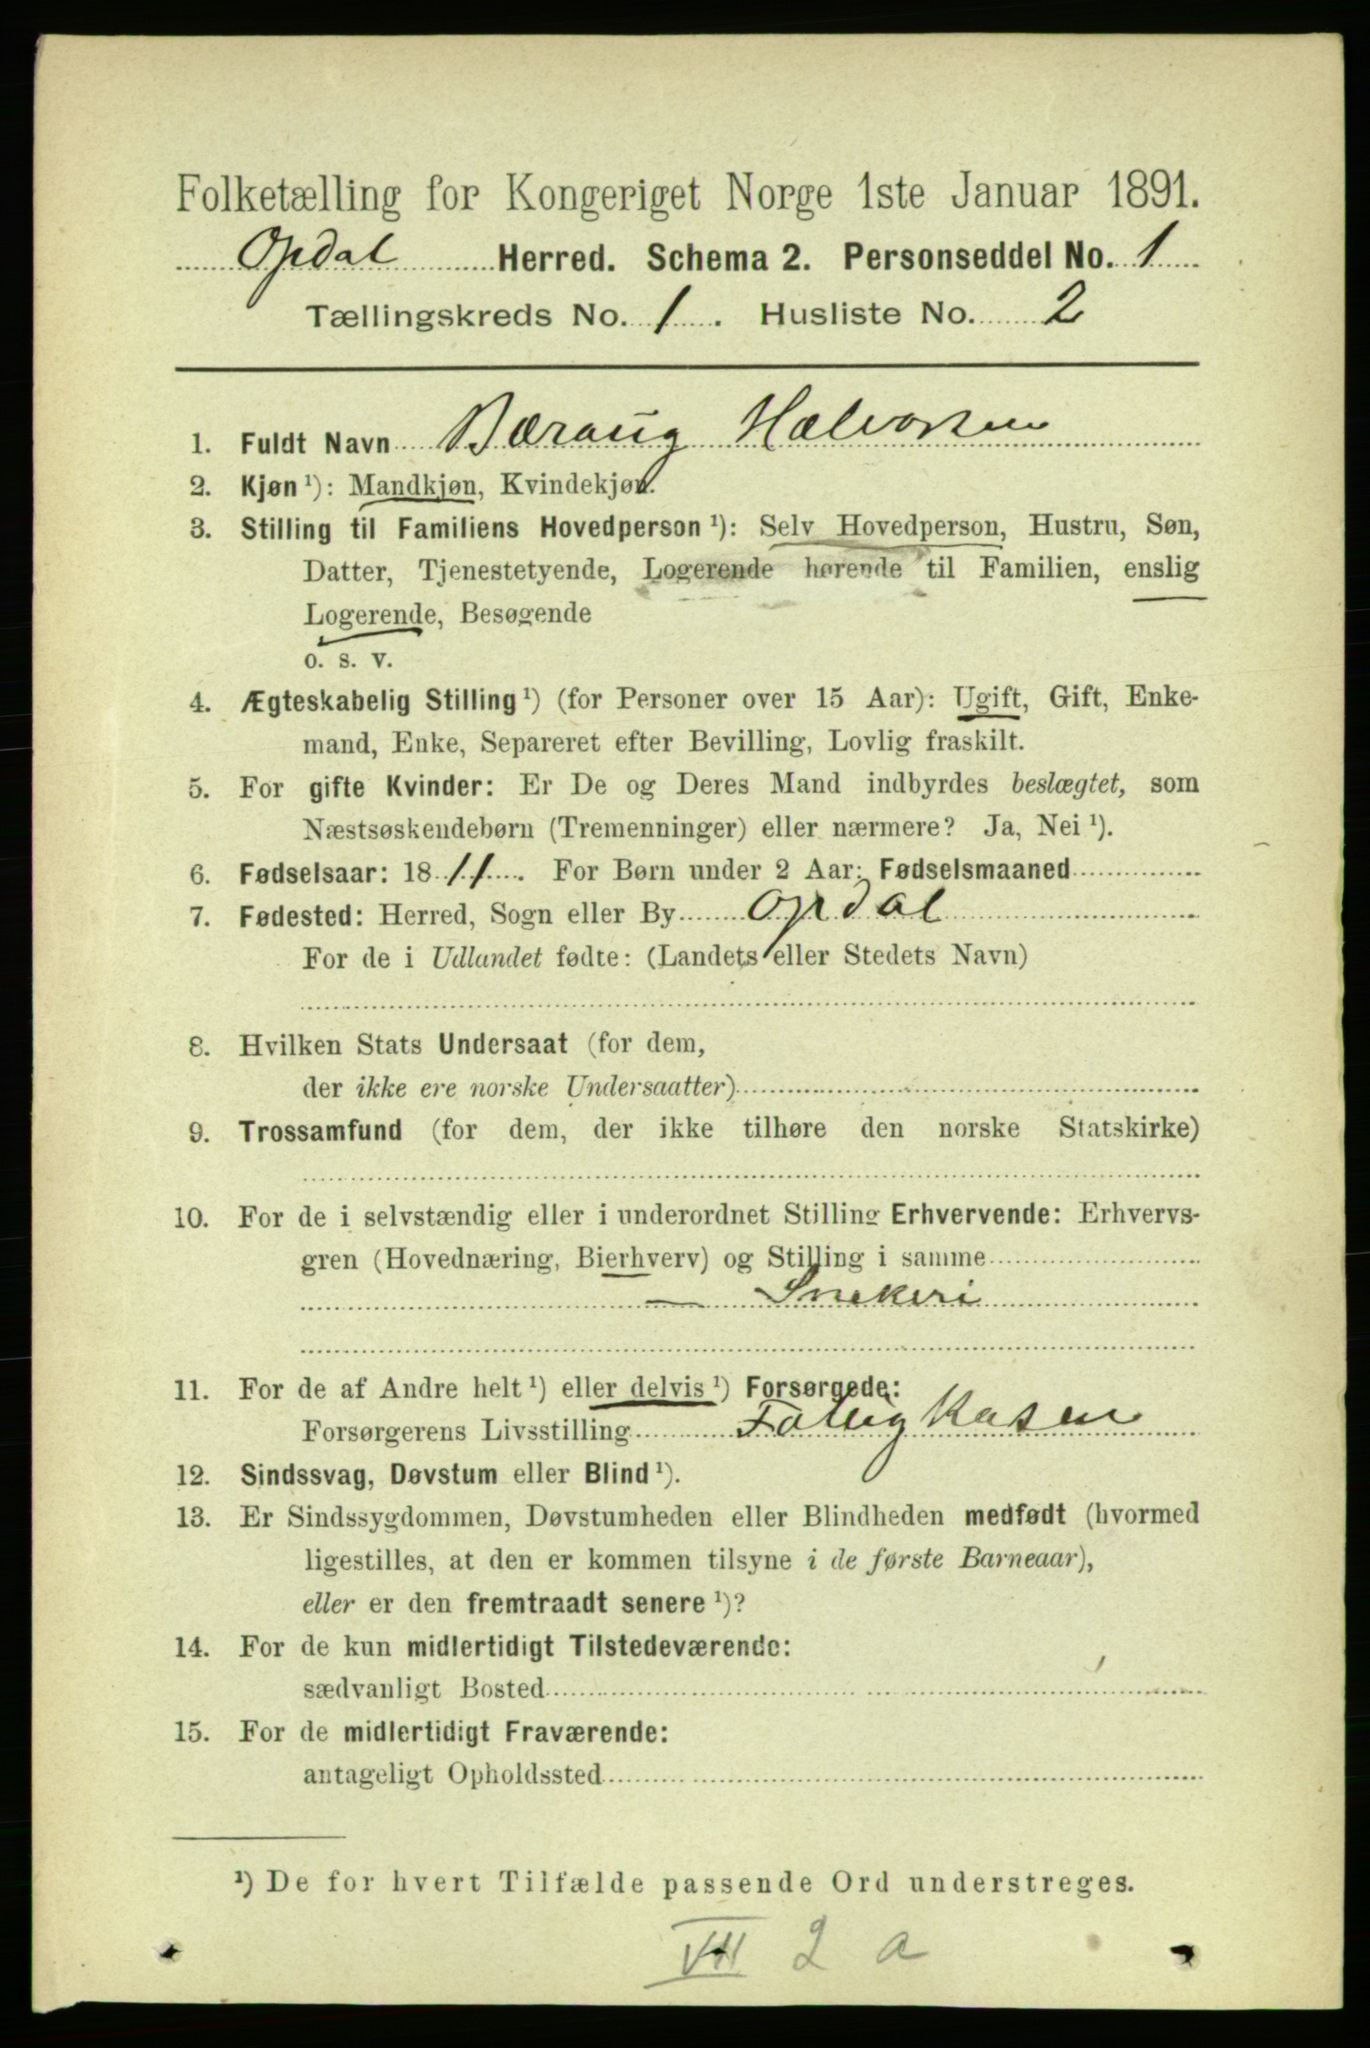 Folketælling for Kongeriget Norge 1ste Januar 1891.
Opdal Herred. Schema 2. Personseddel No. 1
Tællingskreds No. 1. Husliste No. 2
1. Fuldt Navn Bæraug Halvorsen
2. Kjøn ¹): Mandkjøn, Kvindekjøn.
3. Stilling til Familiens Hovedperson ¹): Selv Hovedperson, Hustru, Søn,
Datter, Tjenestetyende, Logerende hørende til Familien, enslig
Logerende, Besøgende
o. s. v.
4. Ægteskabelig Stilling ¹) (for Personer over 15 Aar): Ugift, Gift, Enke-
mand, Enke, Separeret efter Bevilling, Lovlig fraskilt.
5. For gifte Kvinder: Er De og Deres Mand indbyrdes beslægtet, som
Næstsøskendebørn (Tremenninger) eller nærmere? Ja, Nei ¹).
6. Fødselsaar: 1811. For Børn under 2 Aar: Fødselsmaaned
7. Fødested: Herred, Sogn eller By Opdal
For de i Udlandet fødte: (Landets eller Stedets Navn)
8. Hvilken Stats Undersaat (for dem,
der ikke ere norske Undersaatter)
9. Trossamfund (for dem, der ikke tilhøre den norske Statskirke)
10. For de i selvstændig eller i underordnet Stilling Erhvervende: Erhvervs-
gren (Hovednæring, Bierhverv) og Stilling i samme
— Snekeri
11. For de af Andre helt ¹) eller delvis ¹) Forsørgede:
Forsørgerens Livsstilling Fattigkasen
12. Sindssvag, Døvstum eller Blind ¹).
13. Er Sindssygdommen, Døvstumheden eller Blindheden medfødt (hvormed
ligestilles, at den er kommen tilsyne i de første Barneaar),
eller er den fremtraadt senere ¹)?
14. For de kun midlertidigt Tilstedeværende:
sædvanligt Bosted
15. For de midlertidigt Fraværende:
antageligt Opholdssted
¹) De for hvert Tilfælde passende Ord understreges.
VII 2 a